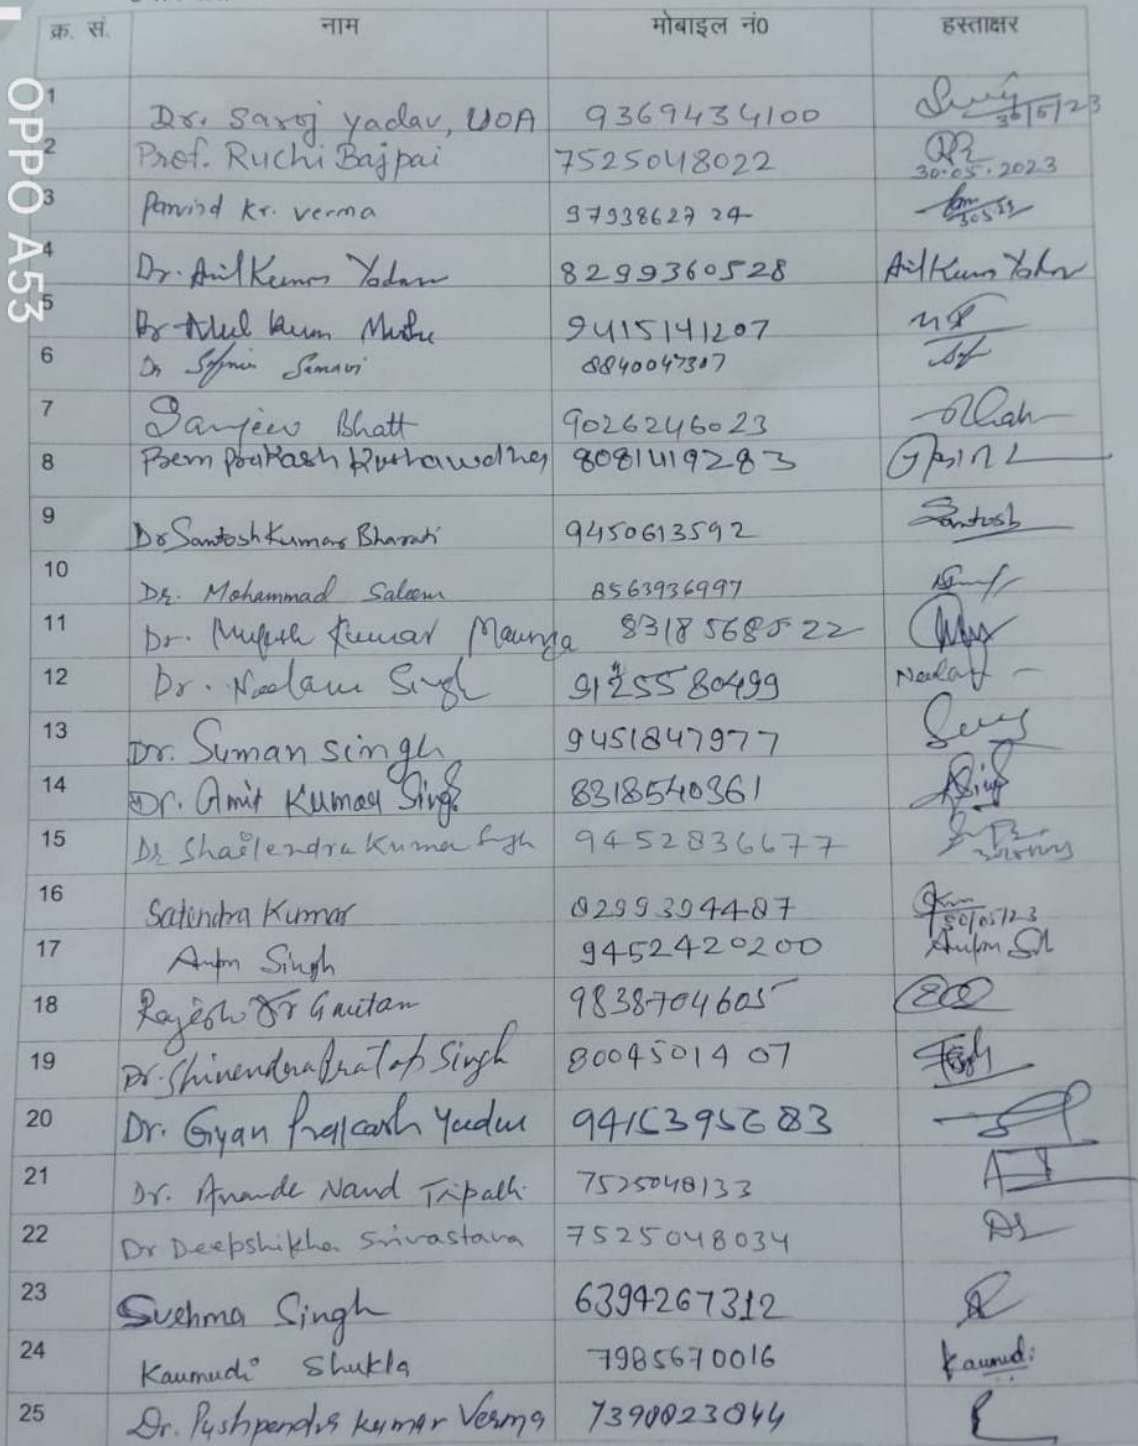 क्र. सं. नाम मोबाइल नं0 हस्ताक्षर
1 Dr. Saroj yadav, UOA 9369434100 30/5/23
2 Prof. Ruchi Bajpai 7525048022 30.05.2023
3 Parvind Kr. verma 9793862724
4 Dr. Anil Kumar Yadav 8299360528 Anil Kumar Yadav
5 Dr Atul Kumar Mishra 9415141207
6 Dr 8840047307
7 Sanjeev Bhatt 9026246023
8 Prem Prakash Kushawdha 8081419283
9 Dr Santosh Kumar Bharati 9450613592 Santosh
10 Dr. Mohammad Saleem 8563936997
11 Dr. Kumar Maurya 8318568522
12 Dr. Neelam Singh 9125580499 Neelam
13 Dr. Suman singh 9451847977
14 Dr. Amit Kumar Singh 8318540361
15 Dr Shailendra Kumar Singh 9452836677
16 Satendra Kumar 8299394487 30/05/23
17 Anton Singh 9452420200
18 Rajesh Kr Gautam 9838704605
19 Dr. Shivendra Pratap Singh 8004501407
20 Dr. Gyan Prakash Yadav 9415395683
21 Dr. Anande Nand Tripathi 7525048133
22 Dr Deepshikha Srivastava 7525048034
23 Suehma Singh 6394267312
24 Kaumudi Shukla 7985670016 Kaumudi
25 Dr. Pushpendra Kumar Verma 7390023844
OPPO A53